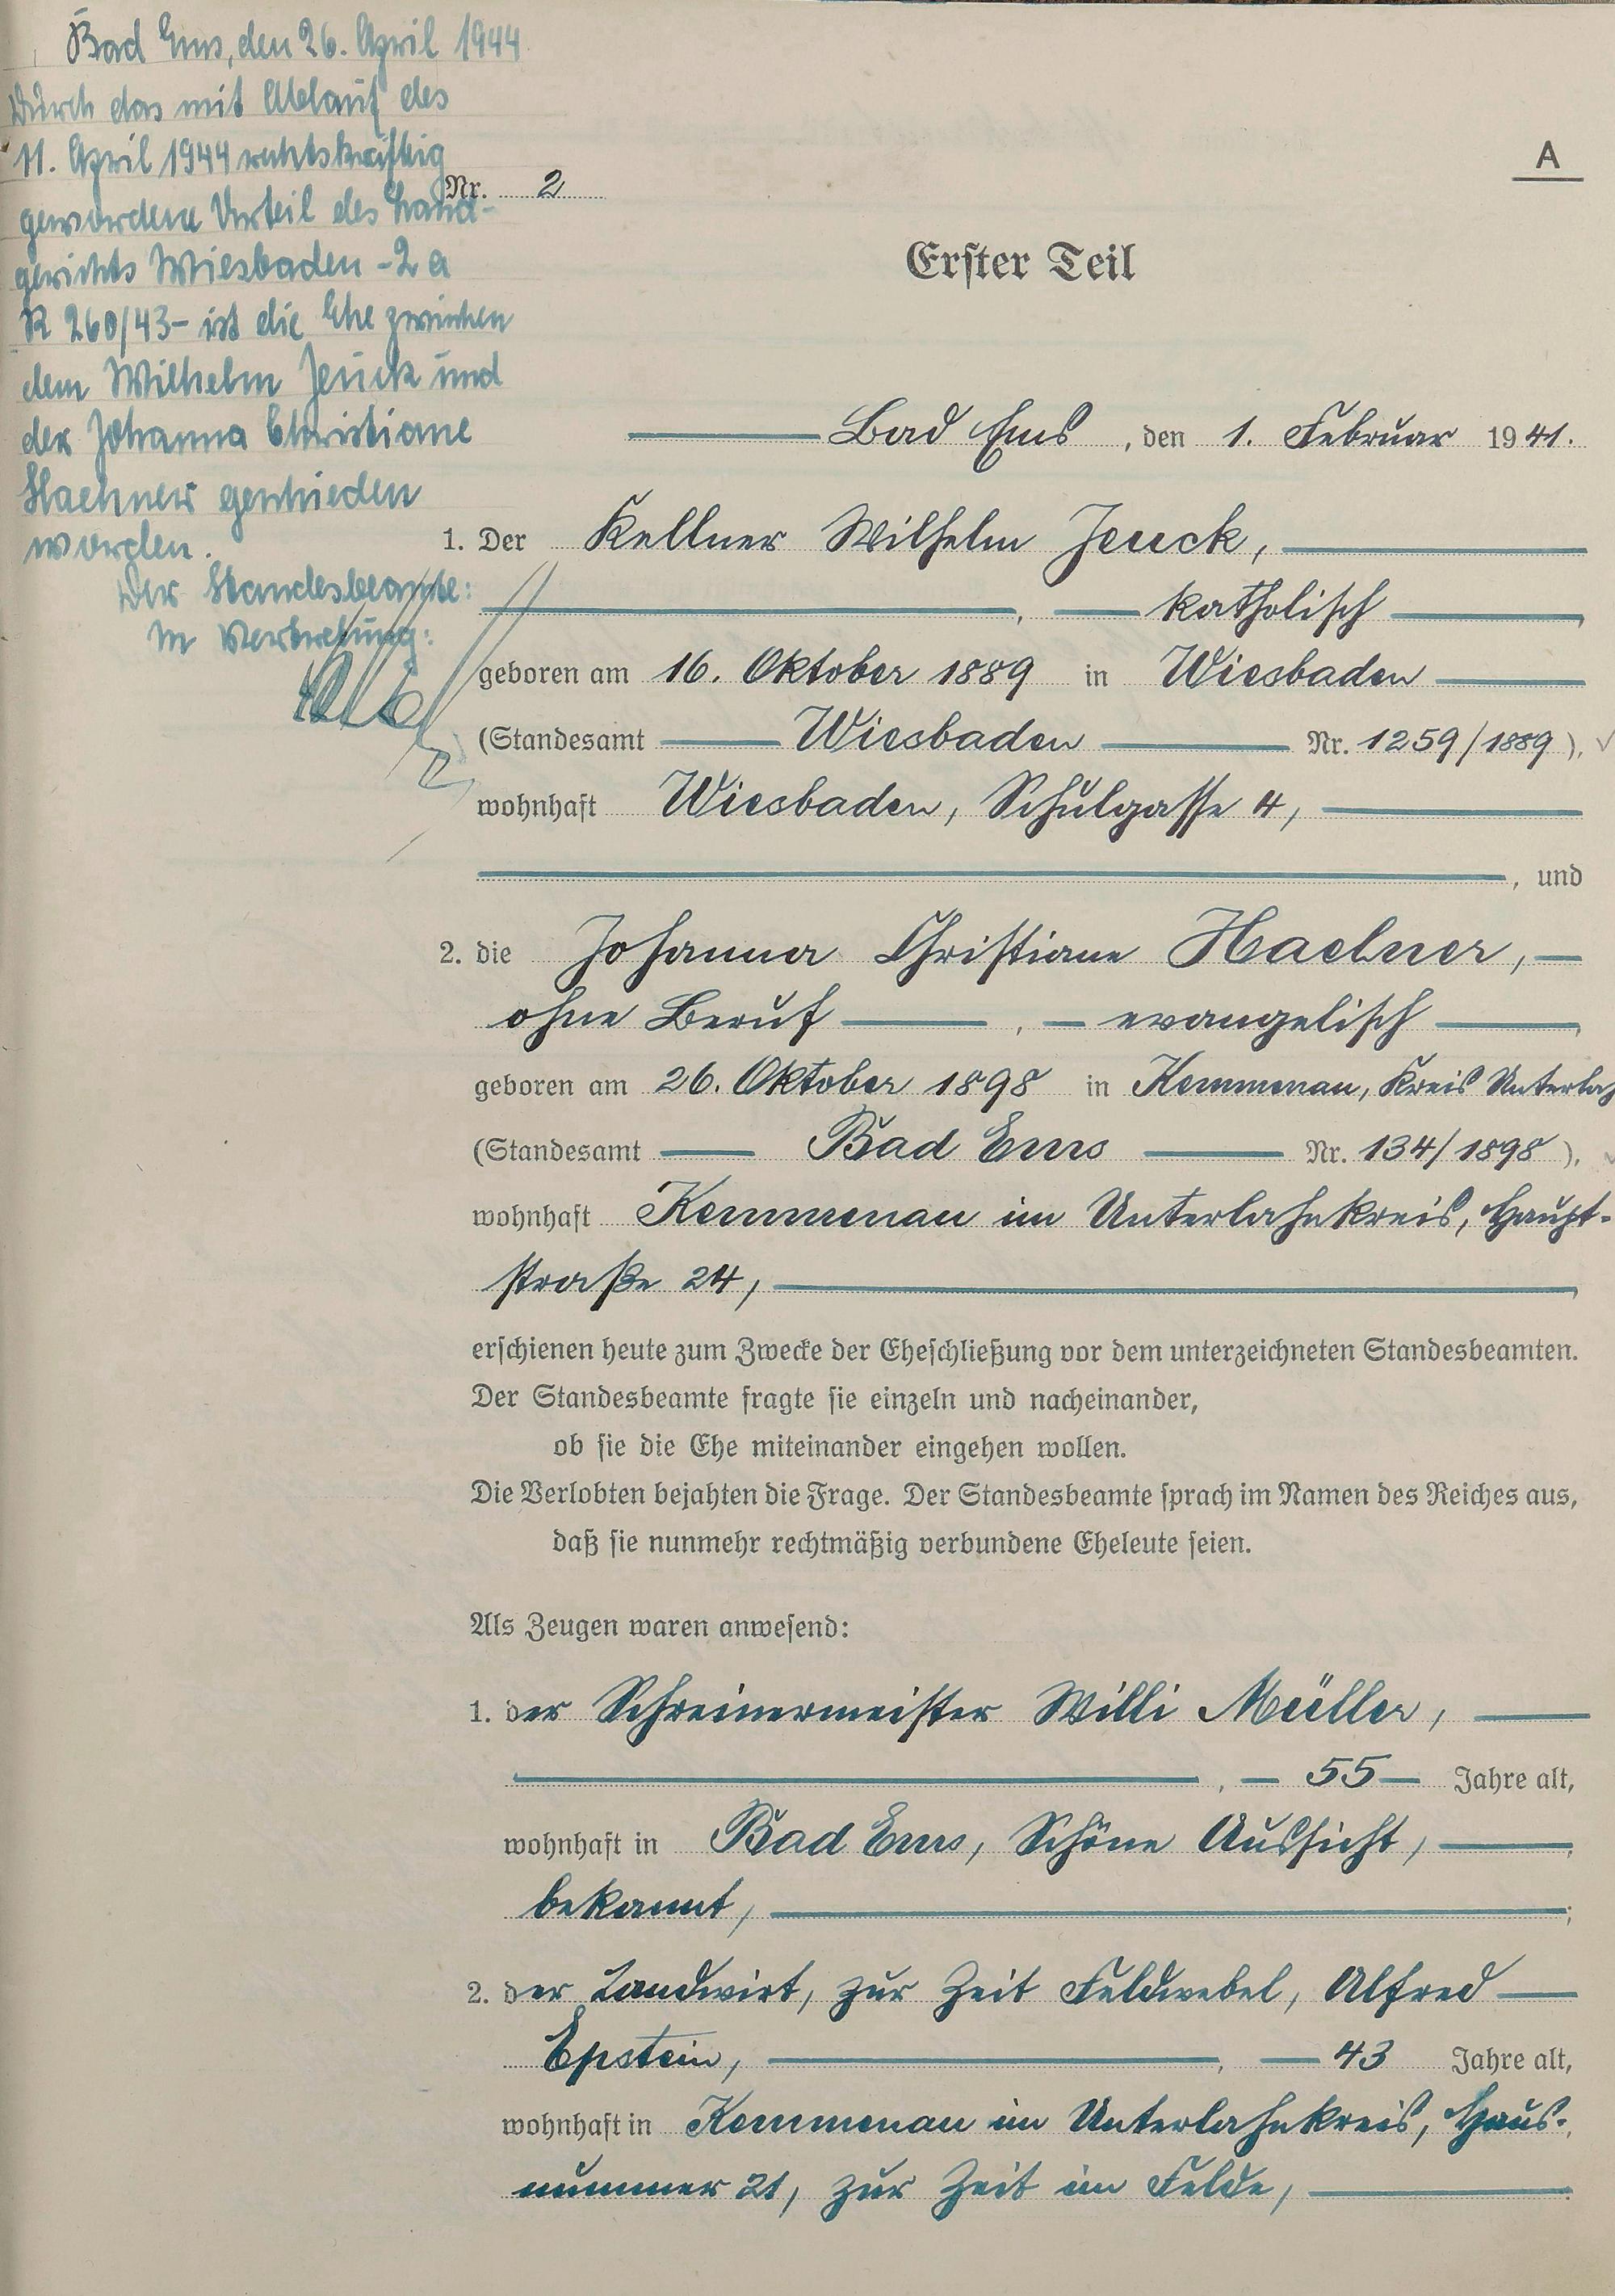 Bad Ems, den 26. April 1944
Durch das mit Ablauf des
11. April 1944 rechtskräftig
gewordene Urteil des Land-
gerichts Wiesbaden - 2 a
R 260/43 - ist die Ehe zwischen
dem Wilhelm Jeuck und
der Johanna Christiane
Haehner geschieden
worden.
Der Standesbeamte:
In Vertretung:
A
Nr. 2
Erster Teil
Bad Ems, den 1. Februar 1941.
1. Der Kellner Wilhelm Jeuck,
, katholisch,
geboren am 16. Oktober 1889 in Wiesbaden
(Standesamt Wiesbaden Nr. 1259/1889),
wohnhaft Wiesbaden, Schulgasse 4,
, und
2. die Johanna Christiane Haehner,
ohne Beruf, evangelisch,
geboren am 26. Oktober 1898 in Kemmenau, Kreis
(Standesamt Bad Ems Nr. 134/1898),
wohnhaft Kemmenau im Unterlahnkreis, Haupt-
straße 24,
erschienen heute zum Zwecke der Eheschließung vor dem unterzeichneten Standesbeamten.
Der Standesbeamte fragte sie einzeln und nacheinander,
ob sie die Ehe miteinander eingehen wollen.
Die Verlobten bejahten die Frage. Der Standesbeamte sprach im Namen des Reiches aus,
daß sie nunmehr rechtmäßig verbundene Eheleute seien.
Als Zeugen waren anwesend:
1. der Schreinermeister Willi Müller,
, 55 Jahre alt,
wohnhaft in Bad Ems, Schöne Aussicht,
bekannt, ;
2. der Landwirt, zur Zeit Feldwebel, Alfred
Epstein, , 43 Jahre alt,
wohnhaft in Kemmenau im Unterlahnkreis, Haus-
nummer 21, zur Zeit im Felde, .